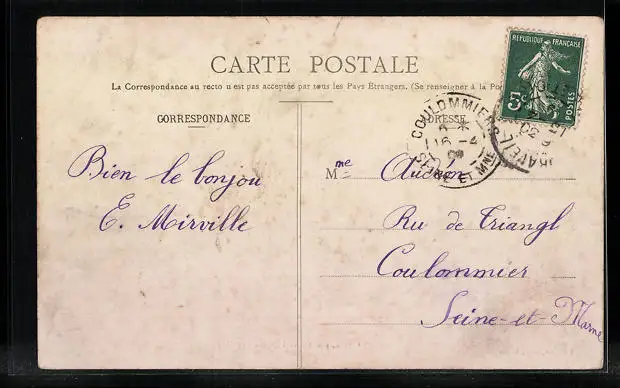 CARTE POSTALE
La Correspondance au recto n'est pas acceptée par tous les Pays Etrangers. (Se renseigner à la Po
CORRESPONDANCE
ADRESSE
RÉPUBLIQUE FRANÇAISE
5c
POSTES
COULOMMIERS
16 - 4
SEINE ET MNE
Bien le bonjou
E. Mirville
Mme
Rue de Triangl
Coulommier
Seine-et-Marne